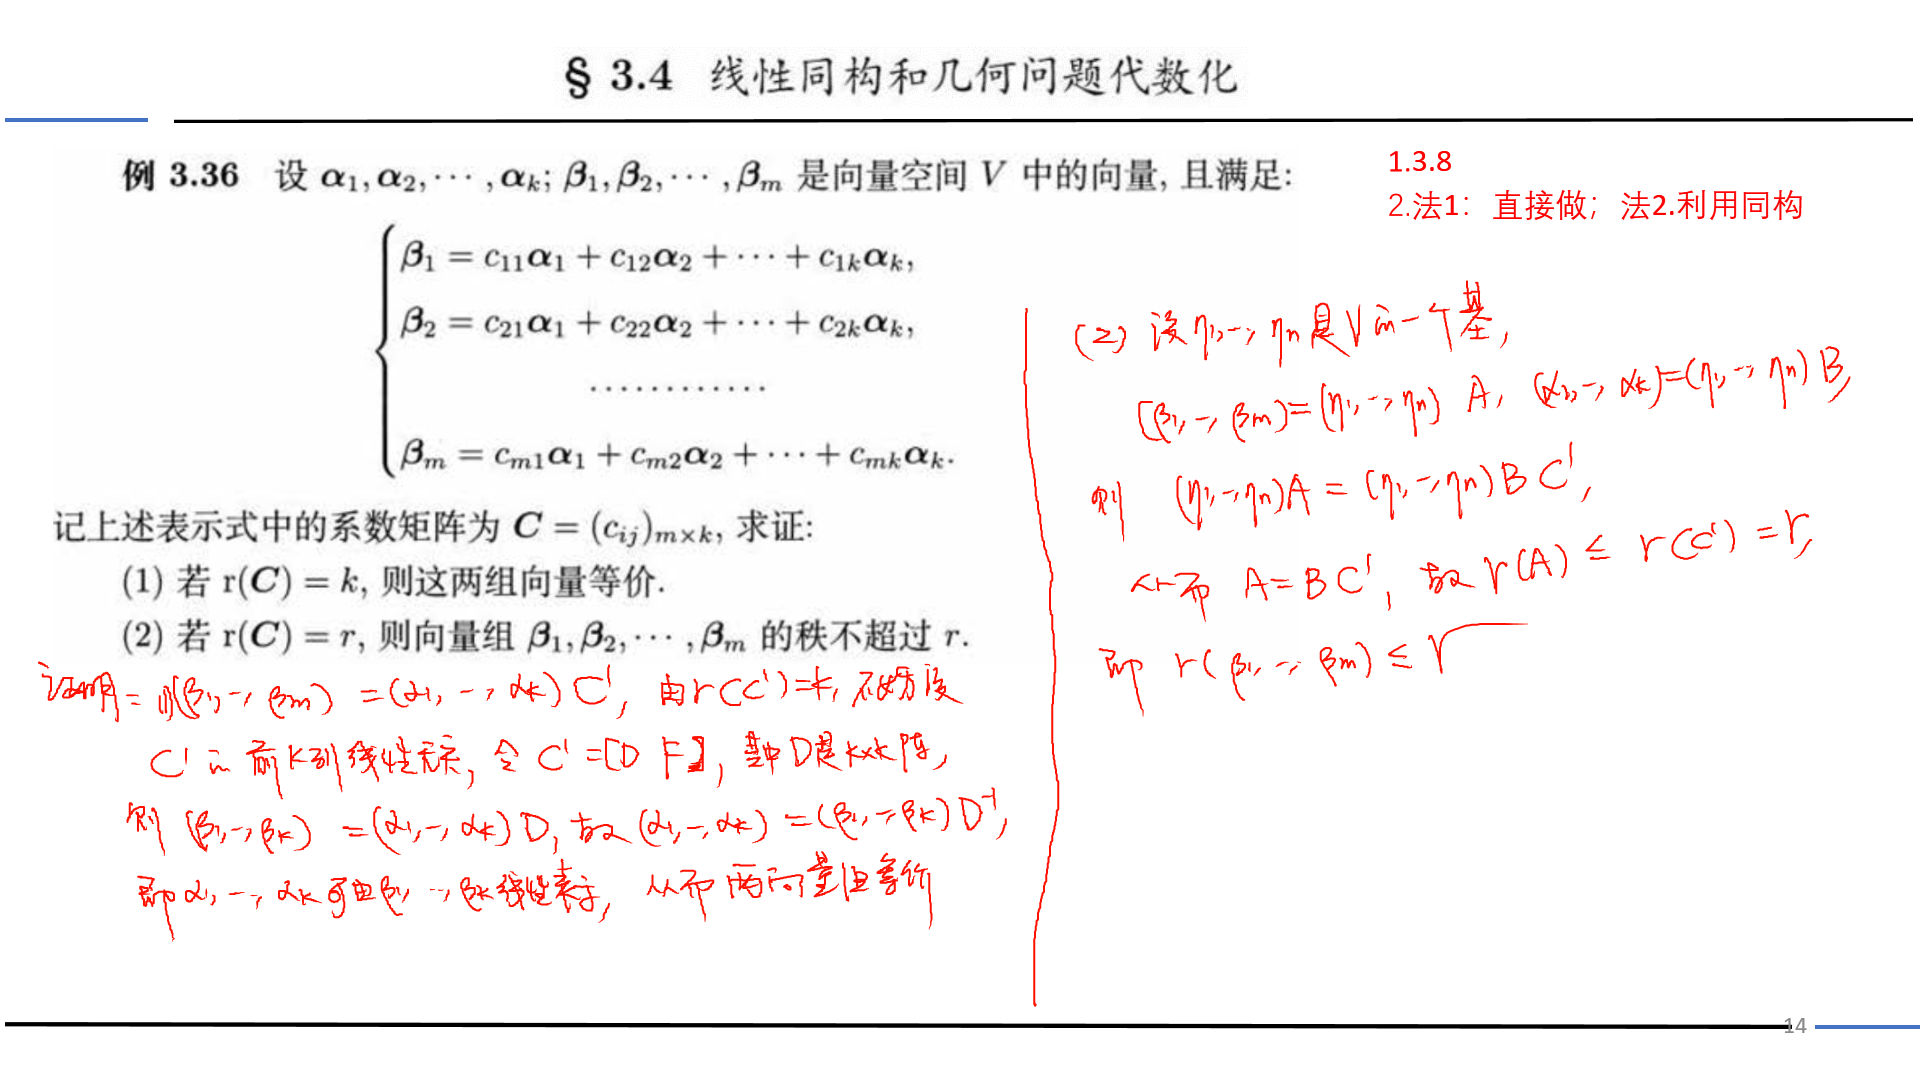 § 3.4 线性同构和几何问题代数化
例 3.36 设 α₁, α₂, ⋯ , αₖ; β₁, β₂, ⋯ , βₘ 是向量空间 V 中的向量, 且满足:
β₁ = c₁₁α₁ + c₁₂α₂ + ⋯ + c₁ₖαₖ,
β₂ = c₂₁α₁ + c₂₂α₂ + ⋯ + c₂ₖαₖ,
⋯⋯⋯⋯
βₘ = cₘ₁α₁ + cₘ₂α₂ + ⋯ + cₘₖαₖ.
记上述表示式中的系数矩阵为 C = (cᵢⱼ)ₘ×ₖ, 求证:
(1) 若 r(C) = k, 则这两组向量等价.
(2) 若 r(C) = r, 则向量组 β₁, β₂, ⋯ , βₘ 的秩不超过 r.
证明: (1) (β₁, ⋯, βₘ) = (α₁, ⋯, αₖ) C', 由 r(C')=k, 不妨设
C' 的前k列线性无关, 令 C' = [D F], 其中D是k×k阵,
则 (β₁, ⋯, βₖ) = (α₁, ⋯, αₖ) D, 故 (α₁, ⋯, αₖ) = (β₁, ⋯, βₖ) D⁻¹,
即 α₁, ⋯, αₖ 可由 β₁, ⋯, βₖ 线性表示, 从而两向量组等价
1.3.8
2.法1：直接做；法2.利用同构
(2) 设 η₁, ⋯, ηₙ 是V的一个基,
(β₁, ⋯, βₘ) = (η₁, ⋯, ηₙ) A, (α₁, ⋯, αₖ) = (η₁, ⋯, ηₙ) B,
则 (η₁, ⋯, ηₙ)A = (η₁, ⋯, ηₙ) B C',
从而 A = B C', 故 r(A) ≤ r(C') = r,
即 r(β₁, ⋯, βₘ) ≤ r
14